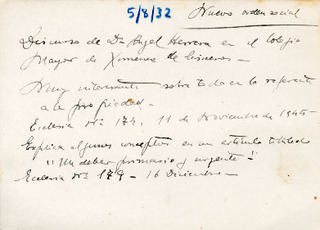 5/8/32
Nuevo orden social
Discurso de Dn Angel Herrera en el Colegio
Mayor de Ximenez de Cisneros -
Muy interesante sobre todo en lo referente
a la propiedad -
Ecclesia nº 174, 11 de Noviembre de 1945 -
Explica algunos conceptos en un artículo titulado
"Un deber primario y urgente" -
Ecclesia nº 179 - 16 Diciembre -